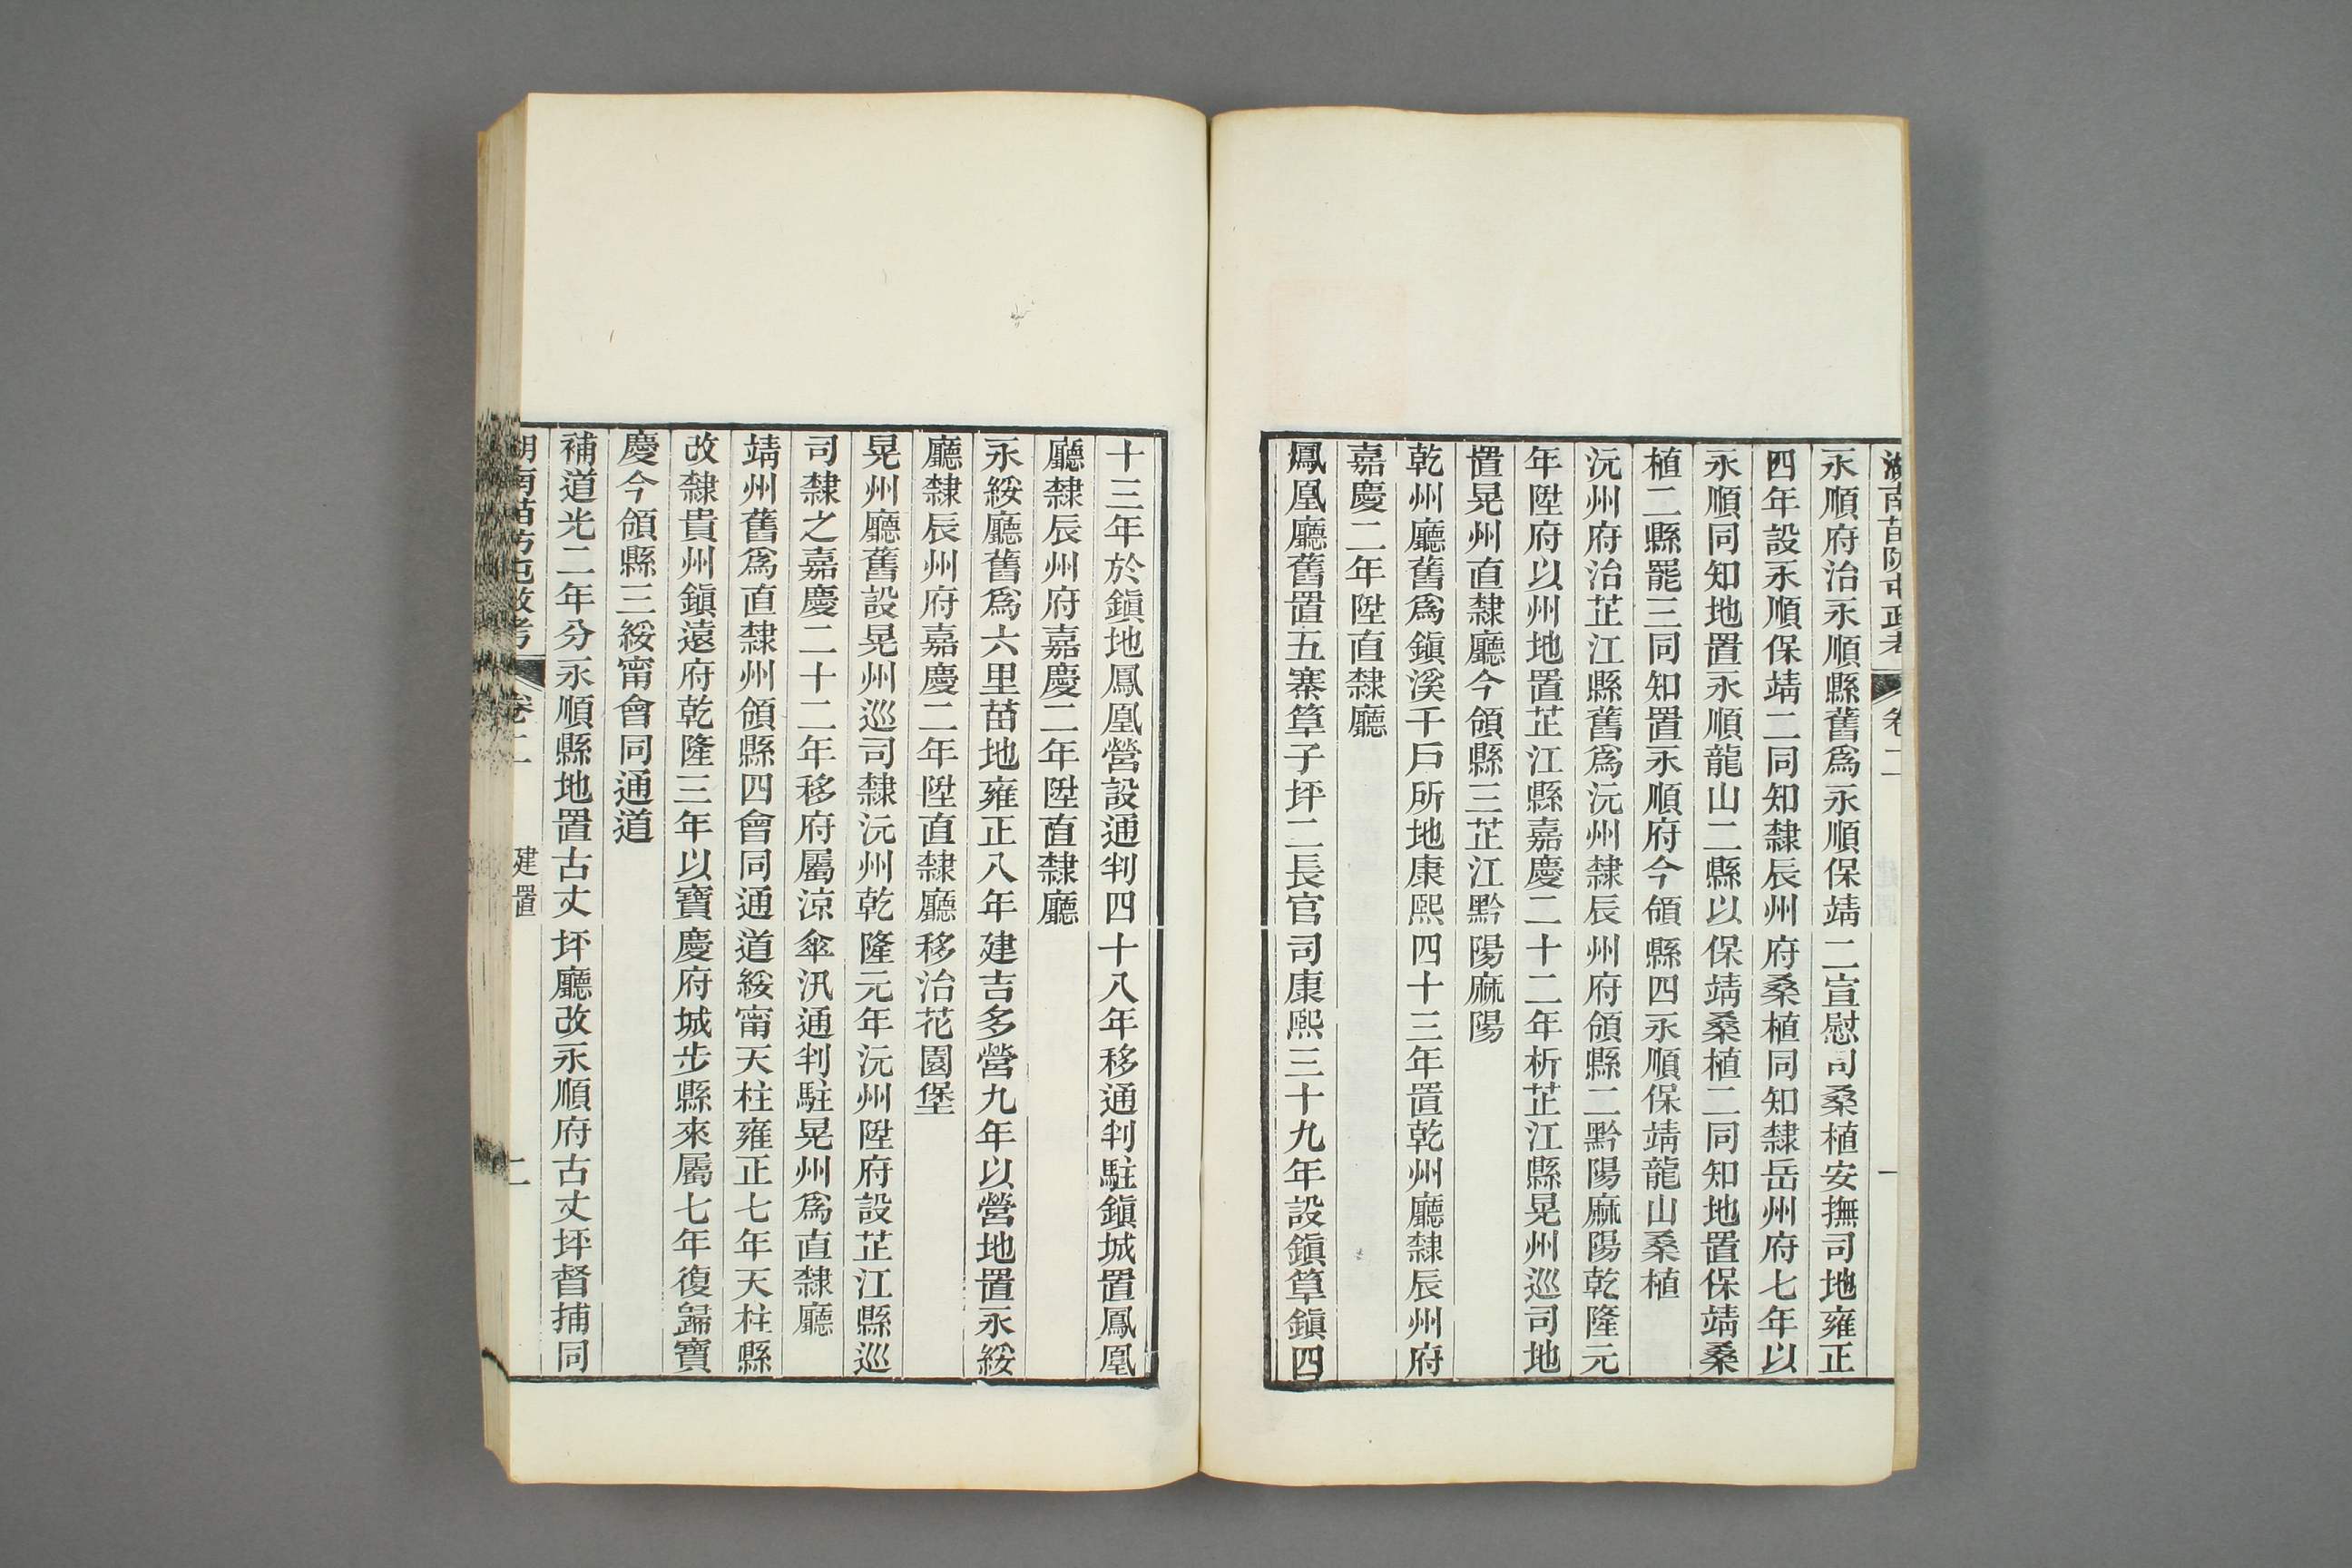 湖南苗防屯政考 卷二 一
永順府治永順縣舊爲永順保靖二宣慰司桑植安撫司地雍正
四年設永順保靖二同知隸辰州府桑植同知隸岳州府七年以
永順同知地置永順龍山二縣以保靖桑植二同知地置保靖桑
植二縣罷三同知置永順府今領縣四永順保靖龍山桑植
沅州府治芷江縣舊爲沅州隸辰州府領縣二黔陽麻陽乾隆元
年陞府以州地置芷江縣嘉慶二十二年析芷江縣晃州巡司地
置晃州直隸廳今領縣三芷江黔陽麻陽
乾州廳舊爲鎭溪千戶所地康熙四十三年置乾州廳隸辰州府
嘉慶二年陞直隸廳
鳳凰廳舊置五寨筸子坪二長官司康熙三十九年設鎭筸鎭四
十三年於鎭地鳳凰營設通判四十八年移通判駐鎭城置鳳凰
廳隸辰州府嘉慶二年陞直隸廳
永綏廳舊爲六里苗地雍正八年建吉多營九年以營地置永綏
廳隸辰州府嘉慶二年陞直隸廳移治花園堡
晃州廳舊設晃州巡司隸沅州乾隆元年沅州陞府設芷江縣巡
司隸之嘉慶二十二年移府屬涼傘汛通判駐晃州爲直隸廳
靖州舊爲直隸州領縣四會同通道綏甯天柱雍正七年天柱縣
改隸貴州鎭遠府乾隆三年以寶慶府城步縣來屬七年復歸寶
慶今領縣三綏甯會同通道
補道光二年分永順縣地置古丈坪廳改永順府古丈坪督捕同
湖南苗防屯政考 卷二 建置 二